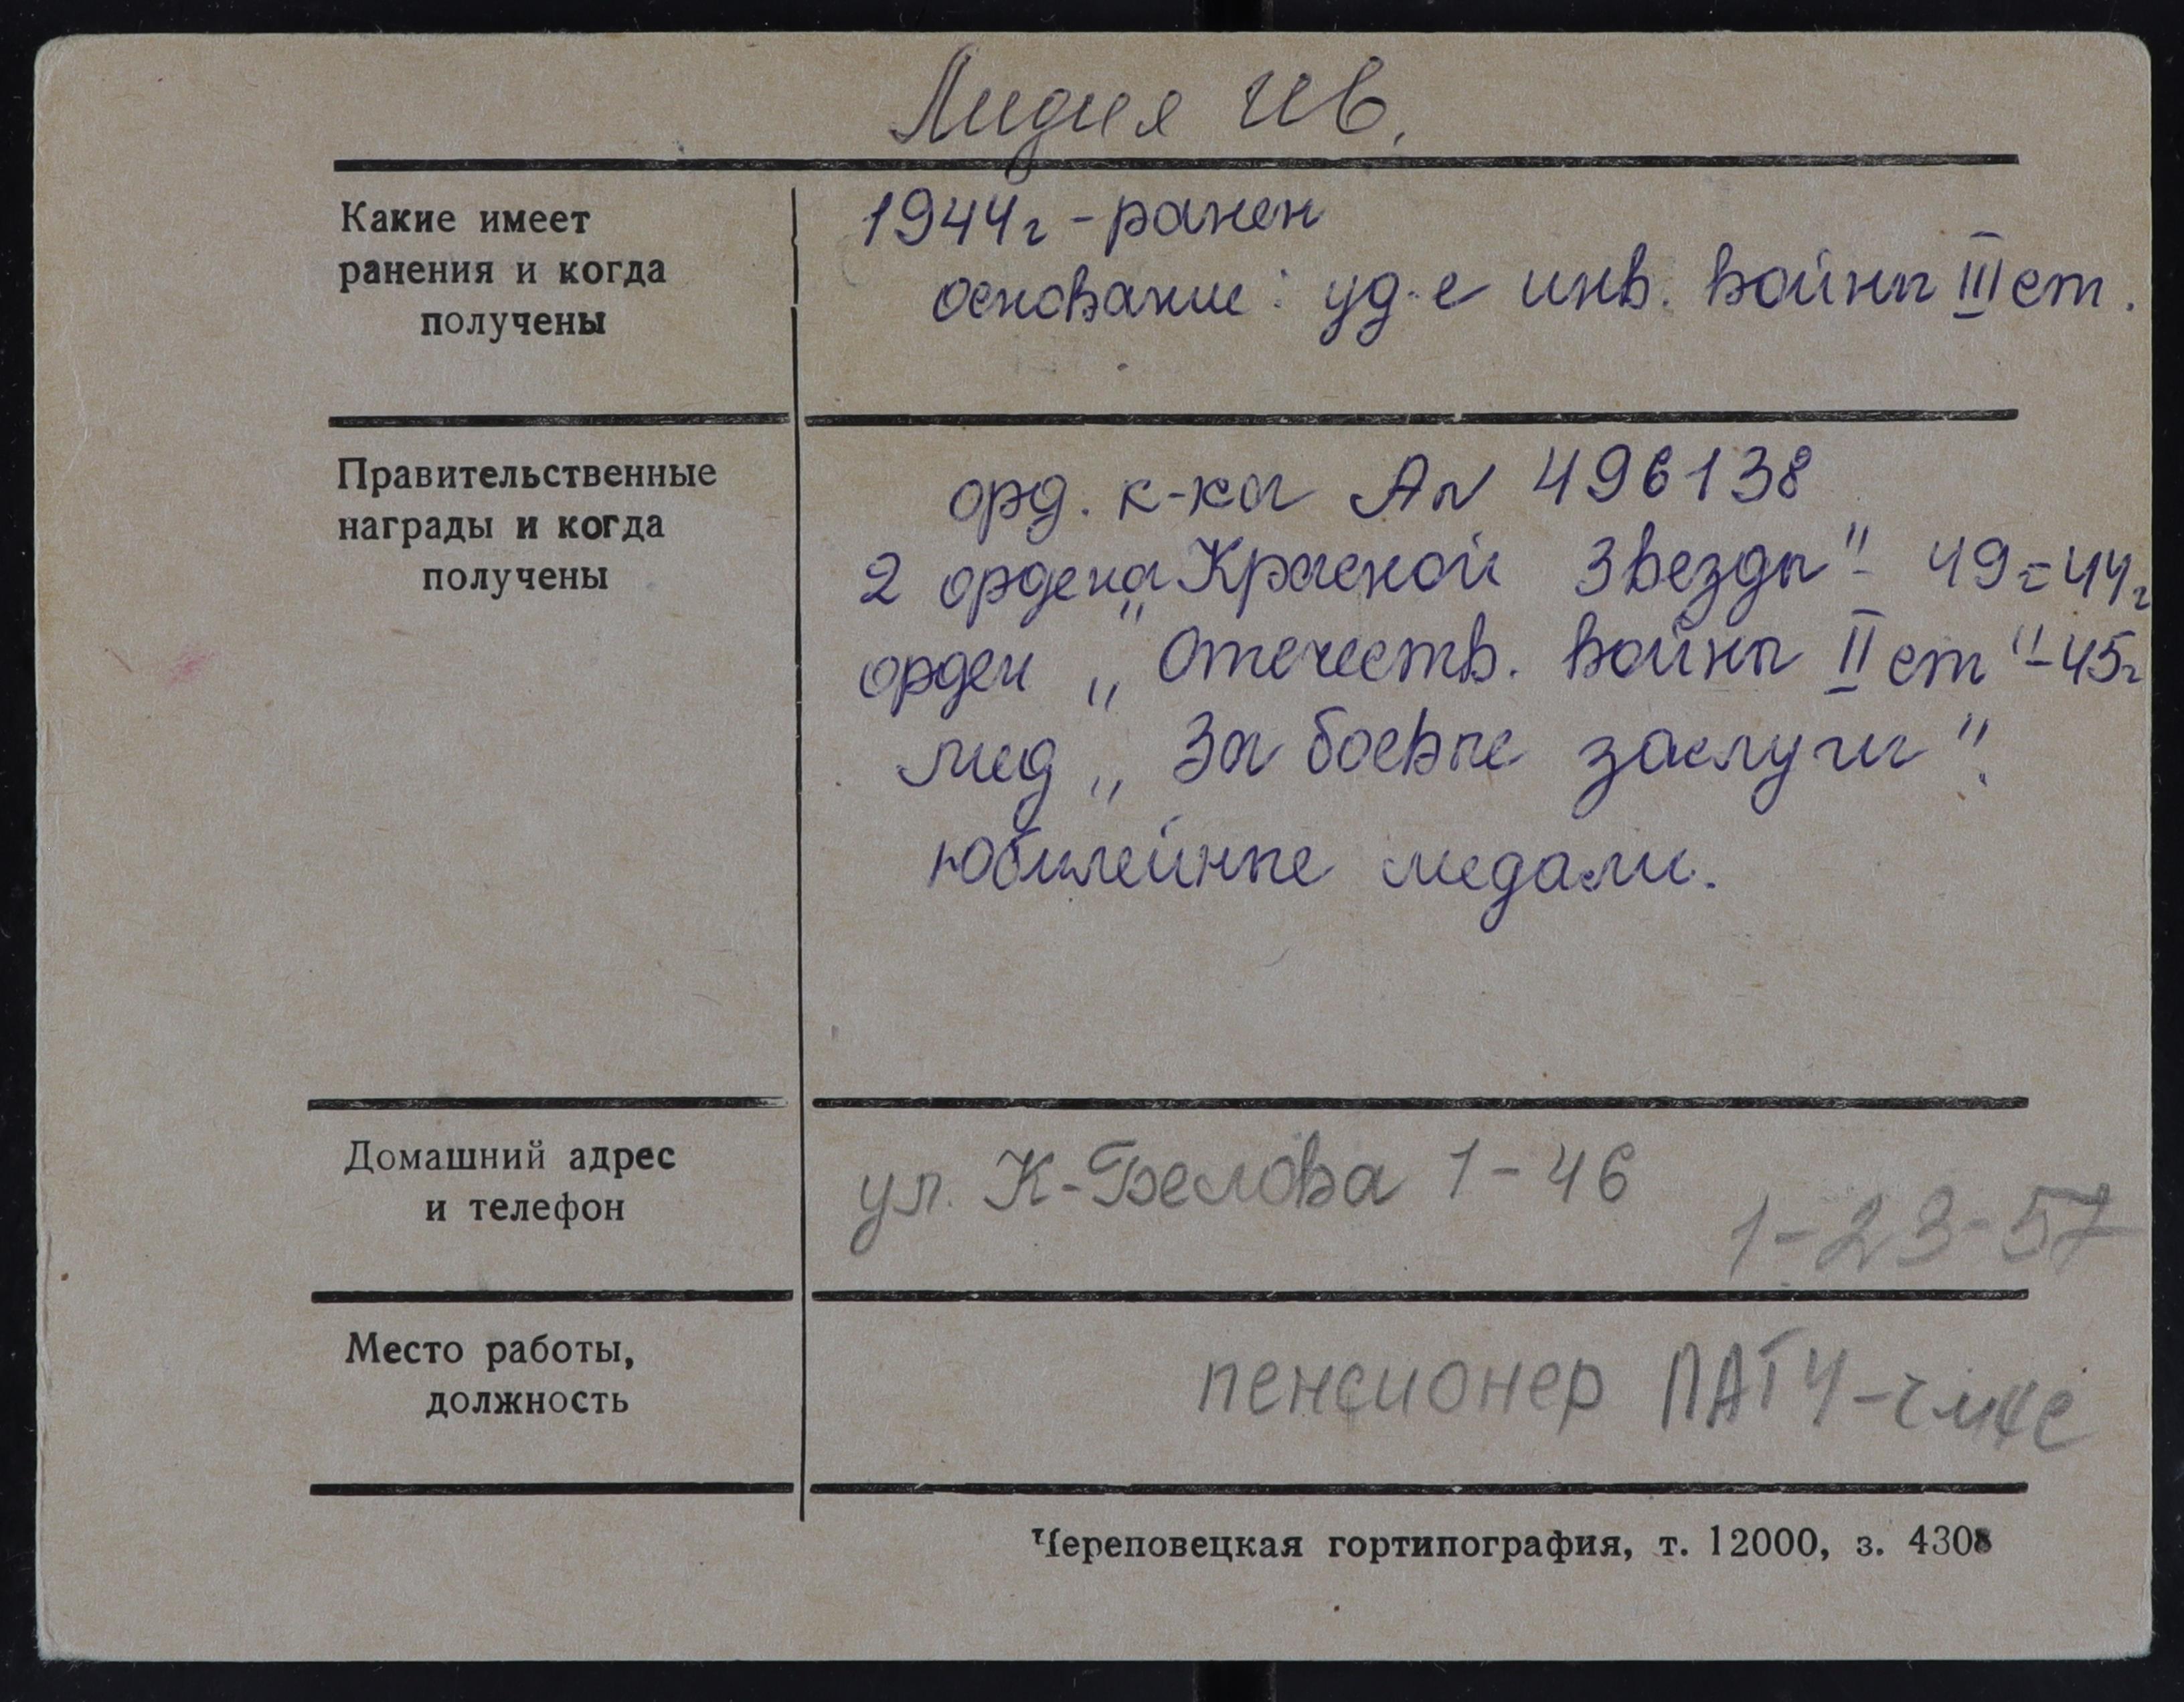 Лидия Ив.
Какие имеет
ранения и когда
получены
1944г - ранен
основание: уд-е инв. войны III ст.
Правительственные
награды и когда
получены
орд. к-ка А№ 496138
2 ордена „Красной Звезды" - 49г 44г
орден „Отечеств. войны II ст" - 45г
мед „За боевые заслуги".
юбилейные медали.
Домашний адрес
и телефон
ул. К-Белова 1-46
1-23-57
Место работы,
должность
пенсионер ПАТУ-ЧМК
Череповецкая гортипография, т. 12000, з. 4308